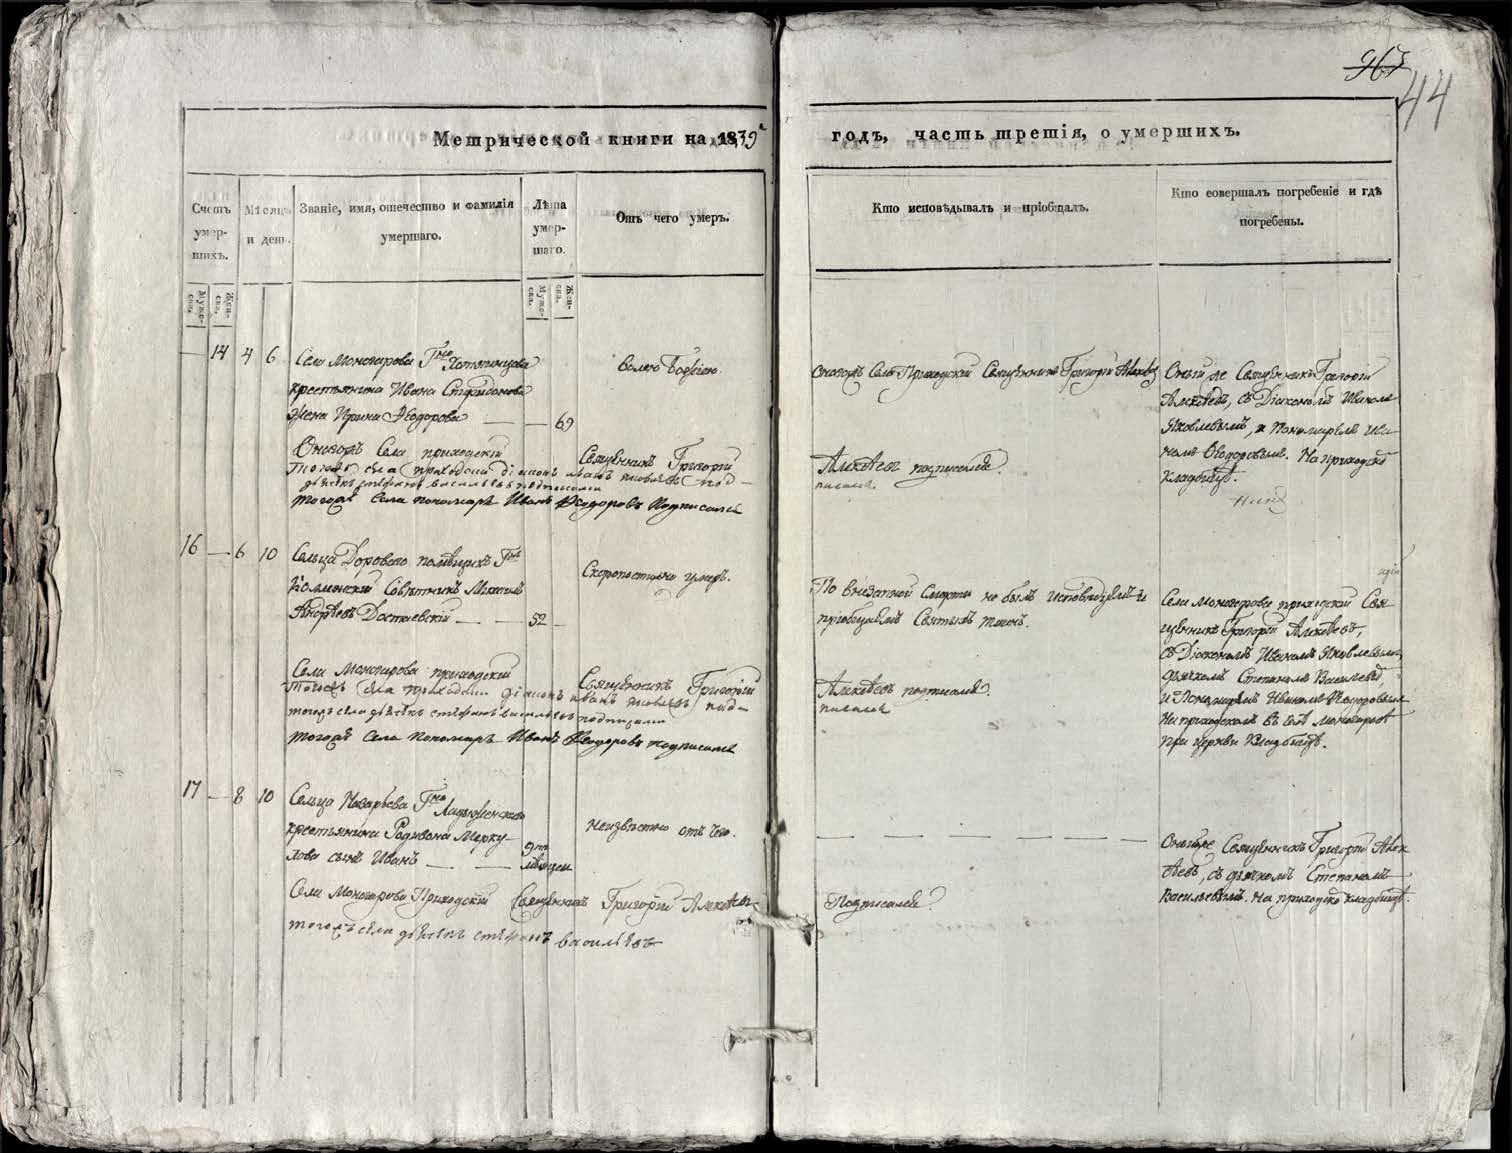 963
44
Метрической книги на 1839 годъ, часть третія, о умершихъ.
Счетъ умер-шихъ.
Мѣсяцъ и день.
Званіе, имя, отечество и фамилія умершаго.
Лѣта умер-шаго.
Отъ чего умеръ.
Кто исповѣдывалъ и пріобщалъ.
Кто совершалъ погребеніе и гдѣ погребены.
Муже-ска.
Жен-ска.
Муже-ска.
Жен-ска.
14 4 6
Села Моногарова Гна Хотяинцова
крестьянина Ивана Спиридонова
жена Ирина Ѳедорова 69
волею Божіею.
Онагожъ Села Приходскій Священникъ Григорій
Оный же Священникъ Григорій
Алексѣевъ, съ Діакономъ Иваномъ
Яковлевымъ, и Пономаремъ Ива-
номъ Ѳедоровымъ. На приходско
кладбищѣ.
Онагожъ Села приходскій Священникъ Григорій Алексѣевъ подписался.
тогожъ села приходской діаконъ иванъ яковлевъ под-писался
дьячекъ стефанъ васильевъ подписался
тогожъ села пономарь Иванъ Ѳеодоровъ подписался
16 6 10
Сельца Дороваго помѣщикъ Гнъ
Коллежскій Совѣтникъ Михаилъ
Андрѣевъ Достаевскій 52
Скоропостижно умеръ.
По внезапной смерти не былъ исповѣдуемъ и
пріобщаемъ Святыхъ таинъ.
Села Моногарова приходскій Свя-
щенникъ Григорій Алексѣевъ,
съ Діакономъ Иваномъ Яковлевымъ,
дьячкомъ Степаномъ Васильевы,
и Пономаремъ Иваномъ Ѳедоровымъ
На приходскомъ въ селѣ Моногаровѣ
при церкви кладбищѣ.
Села Моногарова приходскій Священникъ Григорій Алексѣевъ подписался.
тогожъ села приходской діаконъ иванъ яковлевъ подписался
тогожъ села дьячекъ стефанъ васильевъ подписался
тогожъ села пономарь Иванъ Ѳеодоровъ подписался
17 8 10
Сельца Назарьева Гна Ладыженскаго
крестьянина Родивона Мерку-
лова сынъ Иванъ
9ти
мѣсяцеи
Неизвѣстно отъ чего.
Оный же Священникъ Григорій Алек-
сѣевъ, съ дьячкомъ Степаномъ
Васильевымъ. На приходско кладбищѣ.
Села Моногарова Приходскій Священникъ Григорій Алексѣевъ Подписался.
тогожъ села дьячекъ стефанъ васильевъ